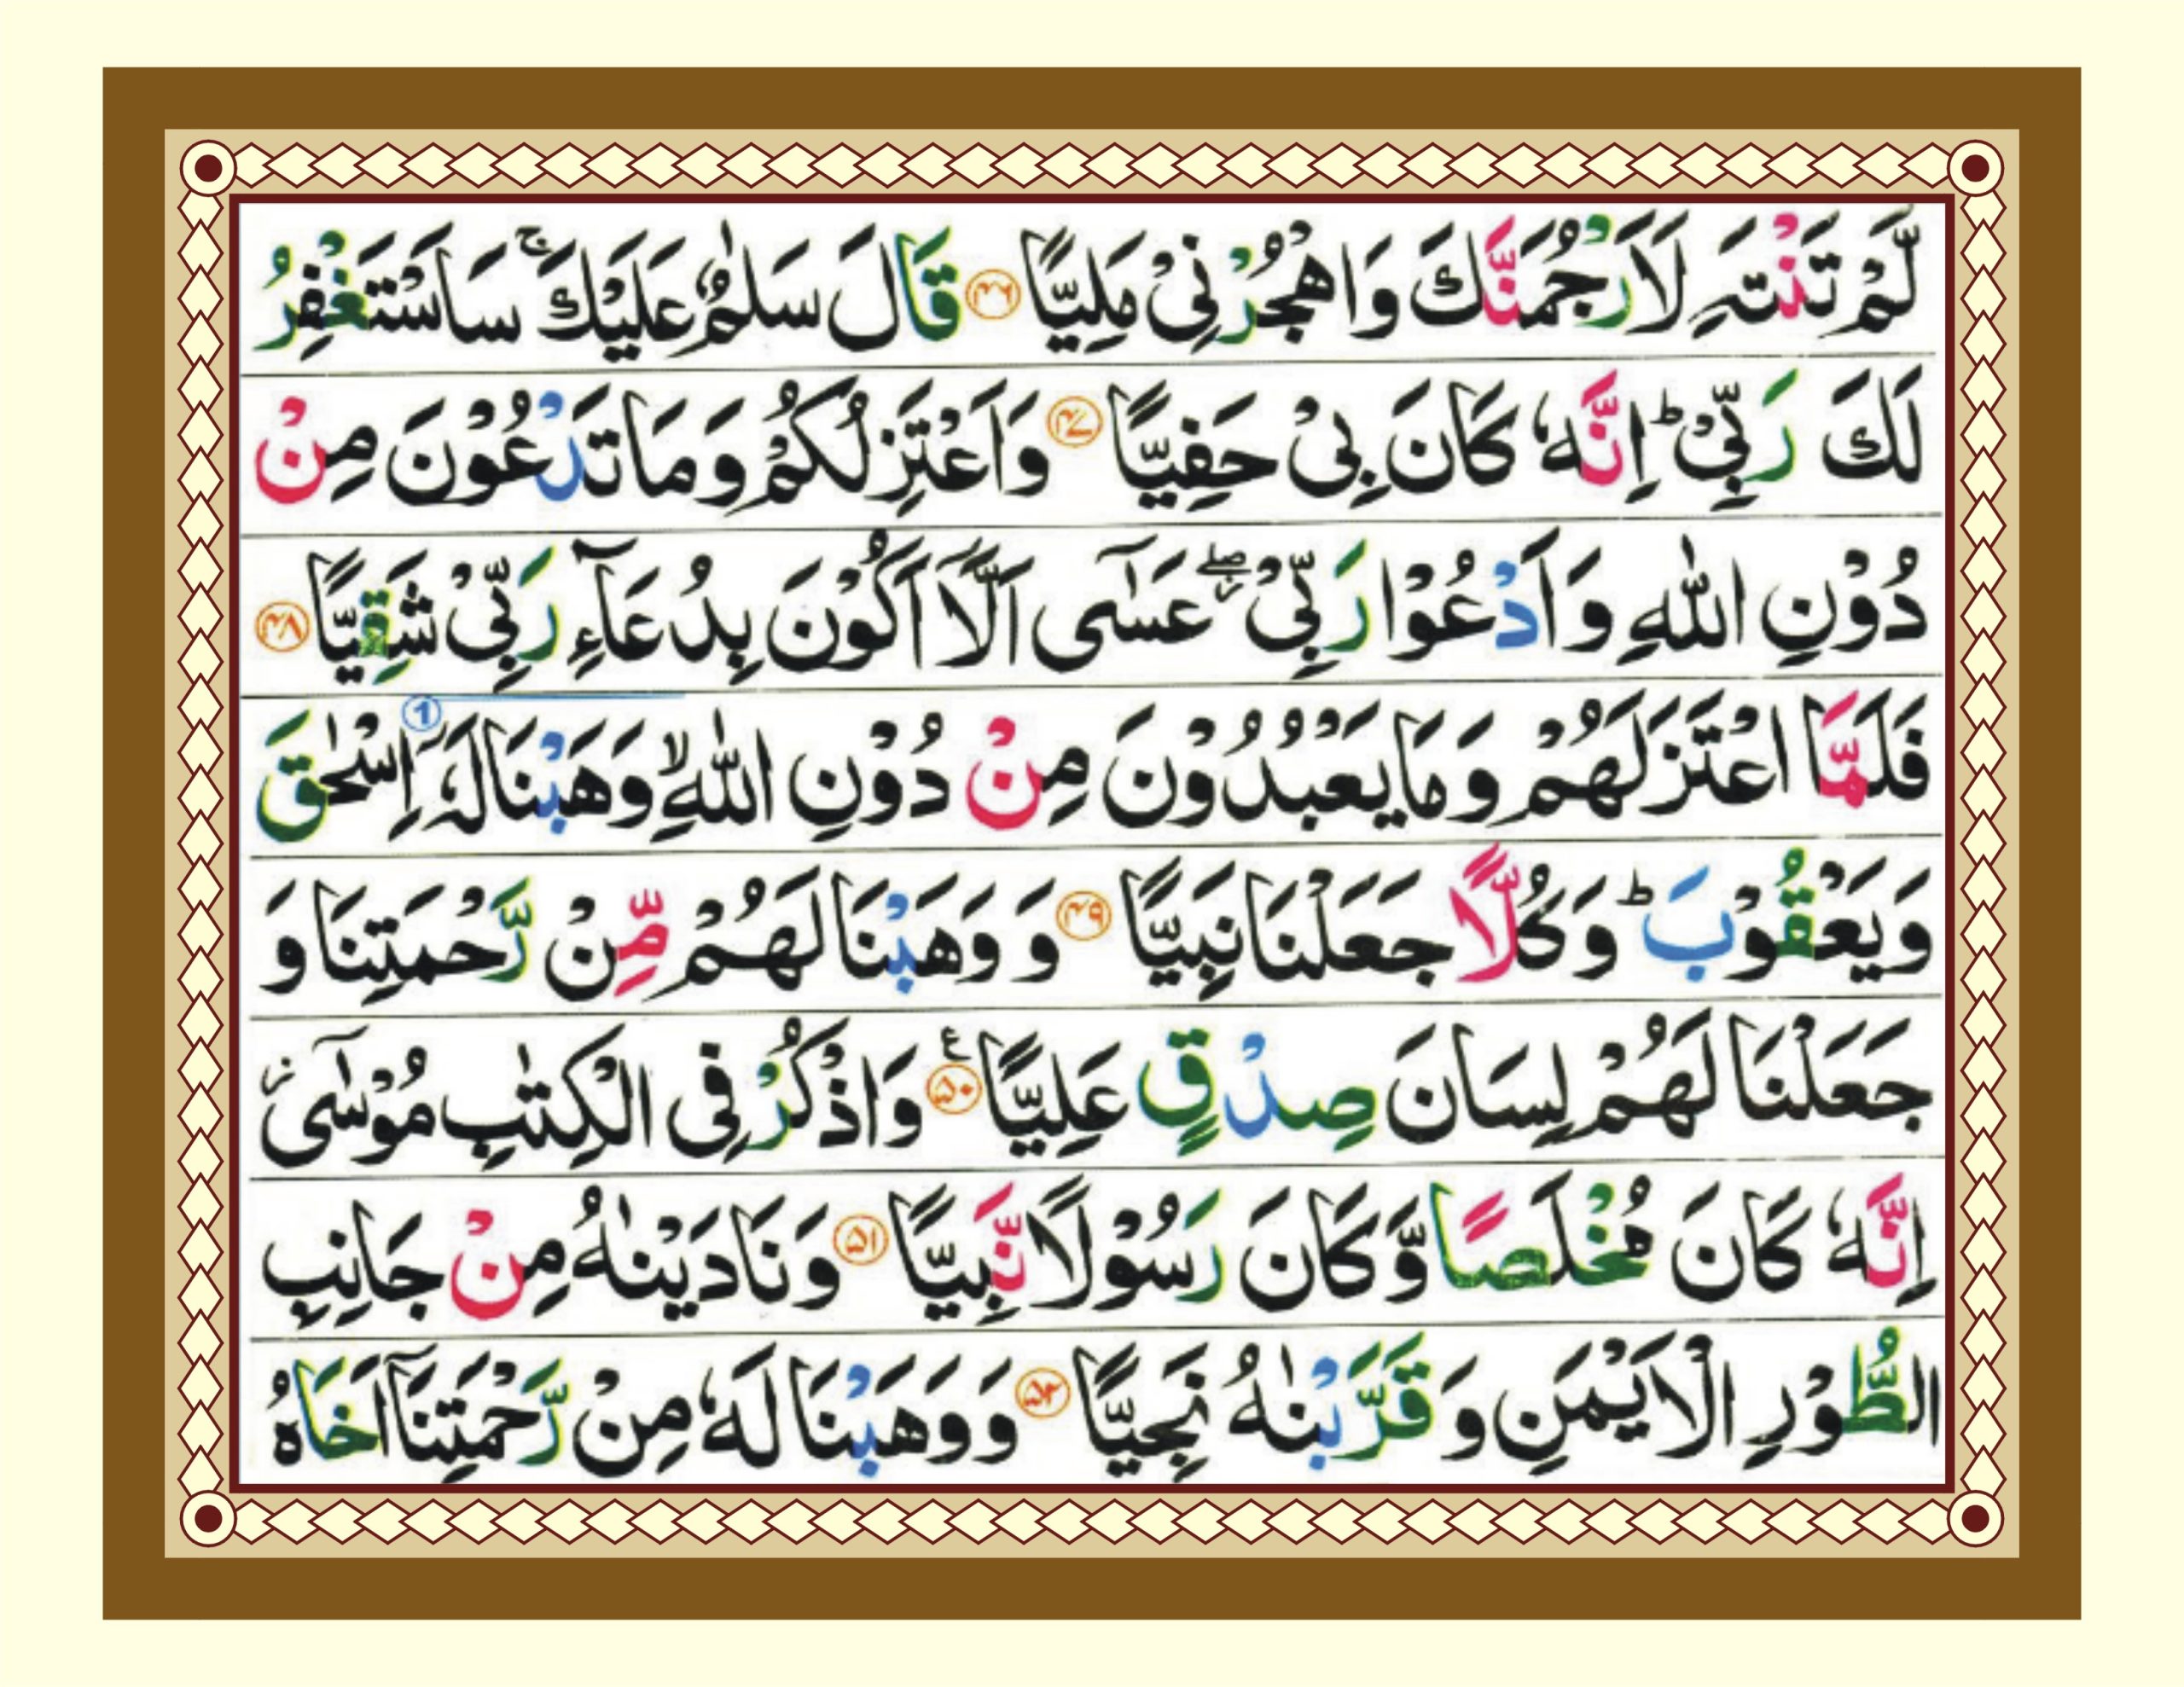 لَّمْ تَنْتَهِ لَاَرْجُمَنَّكَ وَاهْجُرْنِیْ مَلِیًّا ﴿۴۶﴾ قَالَ سَلٰمٌ عَلَیْكَ ۚ سَاَسْتَغْفِرُ
لَكَ رَبِّیْ ؕ اِنَّهٗ كَانَ بِیْ حَفِیًّا ﴿۴۷﴾ وَاَعْتَزِلُكُمْ وَمَا تَدْعُوْنَ مِنْ
دُوْنِ اللّٰهِ وَاَدْعُوْا رَبِّیْ ۖؗ عَسٰۤی اَلَّاۤ اَكُوْنَ بِدُعَآءِ رَبِّیْ شَقِیًّا ﴿۴۸﴾
فَلَمَّا اعْتَزَلَهُمْ وَمَا یَعْبُدُوْنَ مِنْ دُوْنِ اللّٰهِ ۙ وَهَبْنَا لَهٗۤ اِسْحٰقَ ①
وَیَعْقُوْبَ ؕ وَكُلًّا جَعَلْنَا نَبِیًّا ﴿۴۹﴾ وَ وَهَبْنَا لَهُمْ مِّنْ رَّحْمَتِنَا وَ
جَعَلْنَا لَهُمْ لِسَانَ صِدْقٍ عَلِیًّا ﴿۵۰﴾ ع وَاذْكُرْ فِی الْكِتٰبِ مُوْسٰۤی ؗ
اِنَّهٗ كَانَ مُخْلَصًا وَّكَانَ رَسُوْلًا نَّبِیًّا ﴿۵۱﴾ وَنَادَیْنٰهُ مِنْ جَانِبِ
الطُّوْرِ الْاَیْمَنِ وَقَرَّبْنٰهُ نَجِیًّا ﴿۵۲﴾ وَوَهَبْنَا لَهٗ مِنْ رَّحْمَتِنَاۤ اَخَاهُ